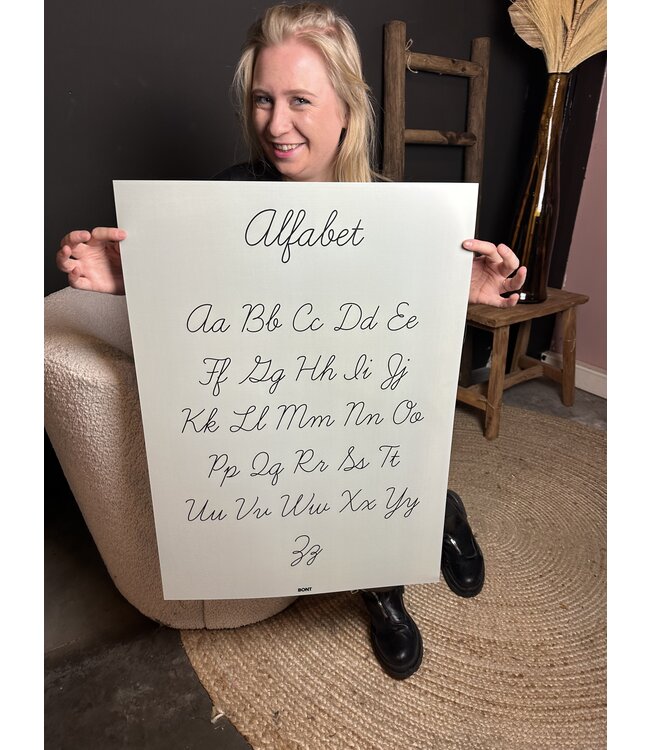 Alfabet
Aa Bb Cc Dd Ee
Ff Gg Hh Ii Jj
Kk Ll Mm Nn Oo
Pp Qq Rr Ss Tt
Uu Vv Ww Xx Yy
Zz
BONT